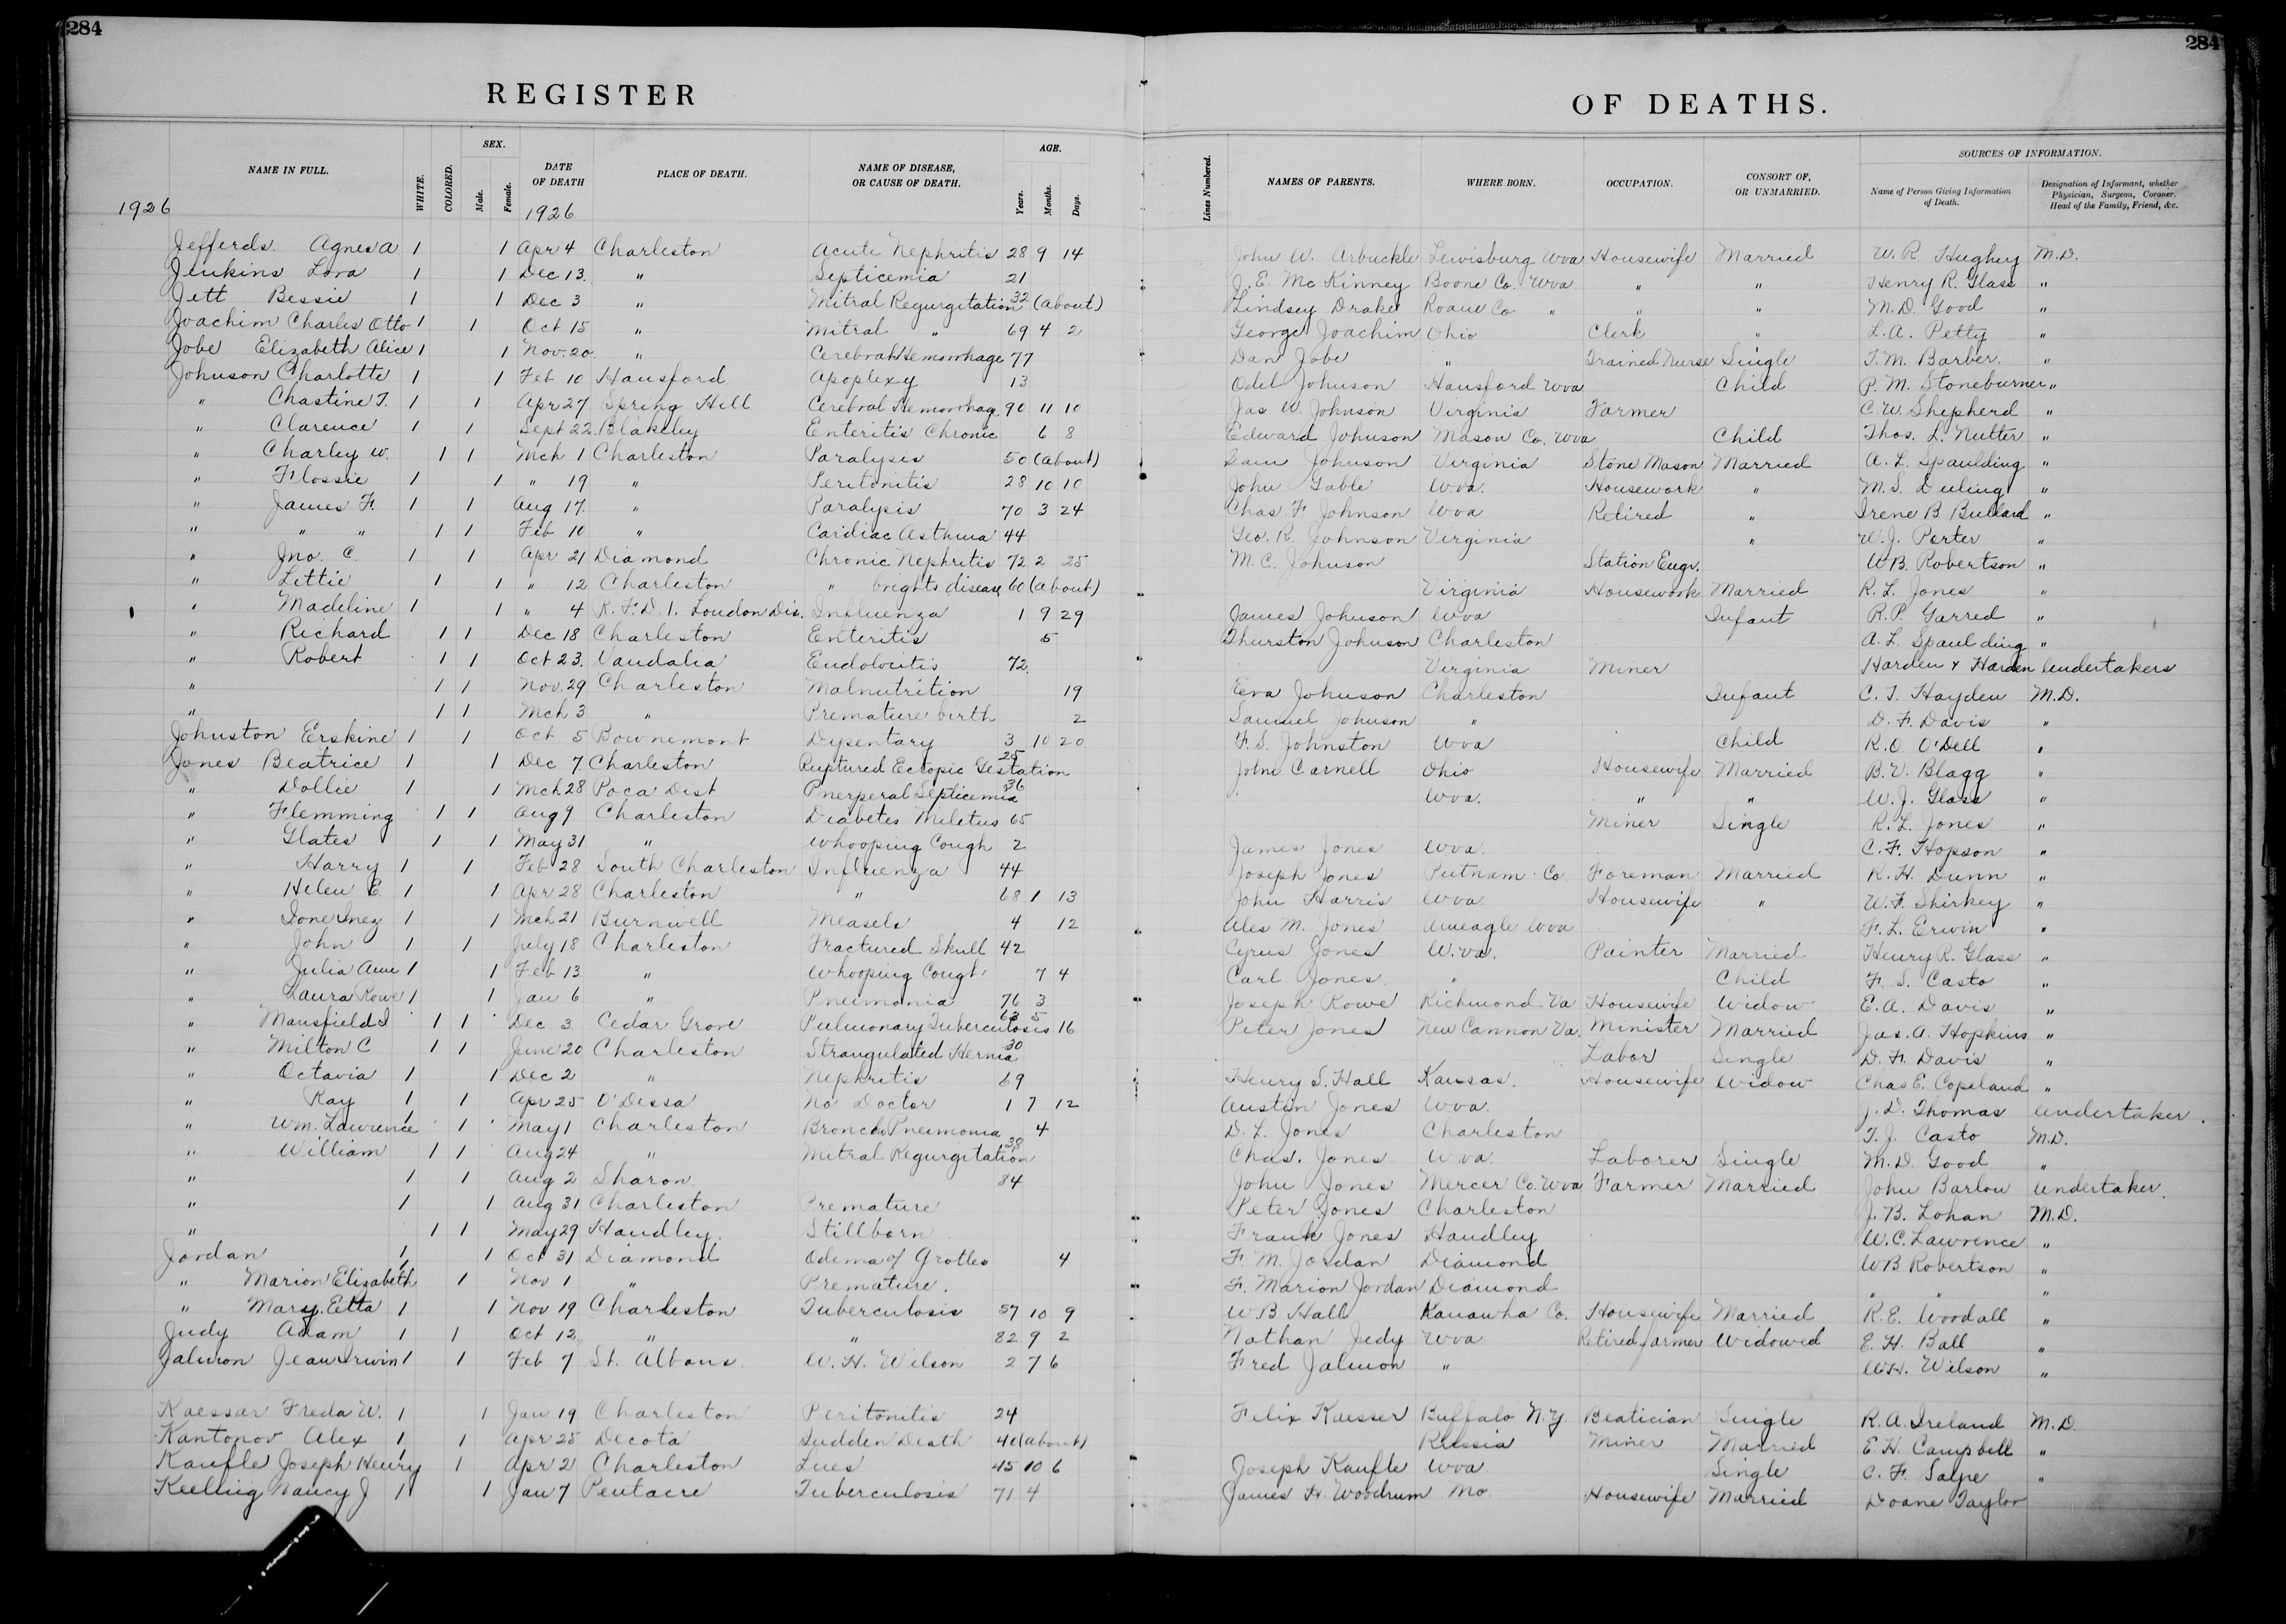 284
284
REGISTER OF DEATHS.
NAME IN FULL. WHITE. COLORED. SEX. Male. Female. DATE OF DEATH PLACE OF DEATH. NAME OF DISEASE, OR CAUSE OF DEATH. AGE. Years. Months. Days. Lines Numbered. NAMES OF PARENTS. WHERE BORN. OCCUPATION. CONSORT OF, OR UNMARRIED. SOURCES OF INFORMATION. Name of Person Giving Information of Death. Designation of Informant, whether Physician, Surgeon, Coroner, Head of the Family, Friend, &c.
1926 1926
Jefferds Agnes A 1 1 Apr 4 Charleston Acute Nephritis 28 9 14 John W. Arbuckle Lewisburg Wva Housewife Married W. R. Hughey M.D.
Jenkins Lora 1 1 Dec 13. " Septicemia 21 J. E. McKinney Boone Co. Wva " " Henry R. Glass "
Jett Bessie 1 1 Dec 3 " Mitral Regurgitation 32 (about) Lindsey Drake Roane Co " " " M. D. Good "
Joachim Charles Otto 1 1 Oct 15 " Mitral " 69 4 2 George Joachim Ohio Clerk " L. A. Petty "
Jobe Elizabeth Alice 1 1 Nov. 20. " Cerebral Hemorrhage 77 Dan Jobe " Trained Nurse Single T. M. Barber. "
Johnson Charlotte 1 1 Feb 10 Hansford Apoplexy 13 Odel Johnson Hansford Wva Child P. M. Stoneburner "
" Chastine T. 1 1 Apr 27 Spring Hill Cerebral Hemorrhag 90 11 10 Jas W. Johnson Virginia Farmer C. W. Shepherd "
" Clarence 1 1 Sept 22. Blakeley Enteritis Chronic 6 8 Edward Johnson Mason Co. Wva Child Thos. L. Nutter "
" Charley W. 1 1 Mch 1 Charleston Paralysis 50 (about) Sam Johnson Virginia Stone Mason Married A. L. Spaulding "
" Flossie 1 1 " 19 " Peritonitis 28 10 10 John Gable W.va. Housework " M. S. Duling "
" James F. 1 1 Aug 17. " Paralysis 70 3 24 Chas. F Johnson Wva Retired " Irene B. Bullard "
" " " 1 1 Feb 10 " Cardiac Asthma 44 Geo. R. Johnson Virginia " W. J. Porter "
" Jno. C 1 1 Apr 21 Diamond Chronic Nephritis 72 2 25 M. C. Johnson Station Engr. W B. Robertson "
" Lettie 1 1 " 12 Charleston " brights disease 60 (about) Virginia Housework Married R. L. Jones "
" Madeline 1 1 " 4 R. F. D. 1. Loudon Dis. Influenza 1 9 29 James Johnson Wva Infant R. P. Garred "
" Richard 1 1 Dec 18 Charleston Enteritis 5 Thurston Johnson Charleston A. L. Spaulding "
" Robert 1 1 Oct 23. Vandalia 72. Virginia Miner Harden & Harden Undertakers
" 1 1 Nov. 29 Charleston Malnutrition 19 Eva Johnson Charleston Infant C. T. Hayden M.D.
" 1 1 Mch 3 " Premature birth 2 Samuel Johnson " D. F. Davis "
Johnston Erskine 1 1 Oct 5 Bownemont Dysentary 3 10 20 F. S. Johnston Wva Child R. O O'Dell "
Jones Beatrice 1 1 Dec 7 Charleston Ruptured Ectopic Gestation 25 John Carnell Ohio Housewife Married B. V. Blagg "
" Dollie 1 1 Mch 28 Poca Dist Pnerperal Septicemia 36 Wva. " " W. J. Glass "
" Flemming 1 1 Aug 9 Charleston Diabetes Miletus 65 Miner Single R. L. Jones "
" Glates 1 1 May 31 " Whooping Cough 2 James Jones Wva. C. F. Hopson "
" Harry 1 1 Feb 28 South Charleston Influenza 44 Joseph Jones Putnam Co Foreman Married K. H. Dunn "
" Helen E. 1 1 Apr 28 Charleston " 68 1 13 John Harris Wva. Housewife " W. F. Shirkey "
" Ione Inez 1 1 Mch 21 Burnwell Measels 4 12 Ales M. Jones Ameagle Wva F. L. Erwin "
" John 1 1 July 18 Charleston Fractured Skull 42 Cyrus Jones W.va. Painter Married Henry R. Glass "
" Julia Ann 1 1 Feb 13 " Whooping Cough 7 4 Carl Jones " Child F. S. Casto "
" Laura Rowe 1 1 Jan 6 " Pneumonia 76 3 Joseph Rowe Richmond Va Housewife Widow E. A. Davis "
" Mansfield I 1 1 Dec 3 Cedar Grove Pulmonary Tuberculosis 63 5 16 Peter Jones New Cannon Va. Minister Married Jas. A. Hopkins "
" Milton C 1 1 June 20 Charleston Strangulated Hernia 30 Labor Single D. F. Davis "
" Octavia 1 1 Dec 2 " Nephritis 69 Henry S. Hall Kansas. Housewife Widow Chas E. Copeland "
" Ray 1 1 Apr 25 O'Dessa No Doctor 1 7 12 Austin Jones Wva. J. D. Thomas Undertaker.
" Wm. Lawrence 1 1 May 1 Charleston Broncho Pneumonia 4 D. L. Jones Charleston T. J. Casto M.D.
" William 1 1 Aug 24 " Mitral Regurgitation 38 Chas. Jones W.va. Laborer Single M. D. Good "
" 1 1 Aug 2 Sharon. 84 John Jones Mercer Co. Wva Farmer Married John Barlow Undertaker.
" 1 1 Aug 31 Charleston Premature Peter Jones Charleston J. B. Lohan M.D.
" 1 1 May 29 Handley. Stillborn Frank Jones Handley W. C. Lawrence "
Jordan 1 1 Oct 31 Diamond Odema of Grottes 4 F. M. Jordan Diamond W B Robertson "
" Marion Elizabeth 1 1 Nov 1 " Premature. F. Marion Jordan Diamond " " "
" Mary Etta 1 1 Nov 19 Charleston Tuberculosis 57 10 9 W B Hall Kanawha Co. Housewife Married R. E. Woodall "
Judy Adam 1 1 Oct 12 " " 82 9 2 Nathan Judy Wva Retired farmer Widowed E. H. Ball "
Jalmon Jean Irwin 1 1 Feb 7 St. Albans. W. H. Wilson 2 7 6 Fred Jalmon " W. H. Wilson "
Kaessar Freda W. 1 1 Jan 19 Charleston Peritonitis 24 Felix Kaesser Buffalo N. Y. Beatician Single R. A. Ireland M.D.
Kantonov Alex 1 1 Apr 25 Decota Sudden Death 40 (about) Russia Miner Married E. H. Campbell "
Kaufle Joseph Henry 1 1 Apr 2 Charleston Lues 45 10 6 Joseph Kaufle Wva Single C. F. Sayre "
Keeling Nancy J 1 1 Jan 7 Pentacre Tuberculosis 71 4 James H. Woodrum Mo. Housewife Married Doane Taylor